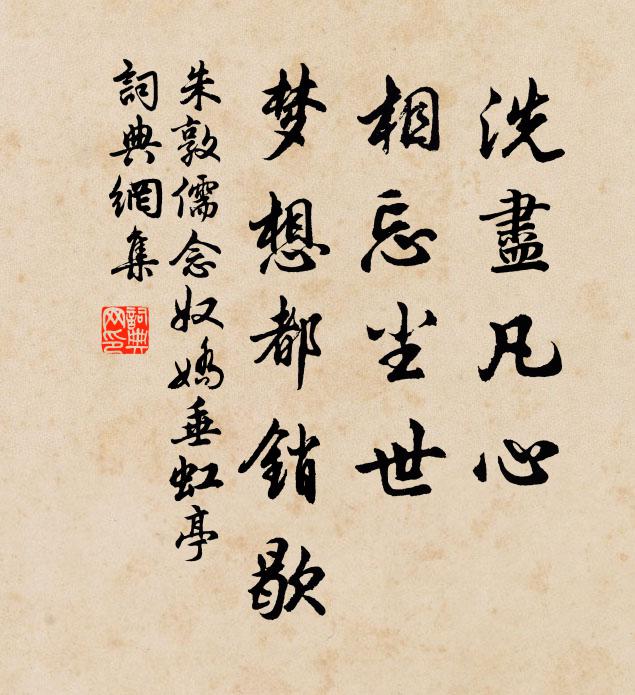 洗盡凡心
相忘尘世
梦想都銷歇
朱敦儒念奴嬌垂虹亭
詞典網集
詞典
网印